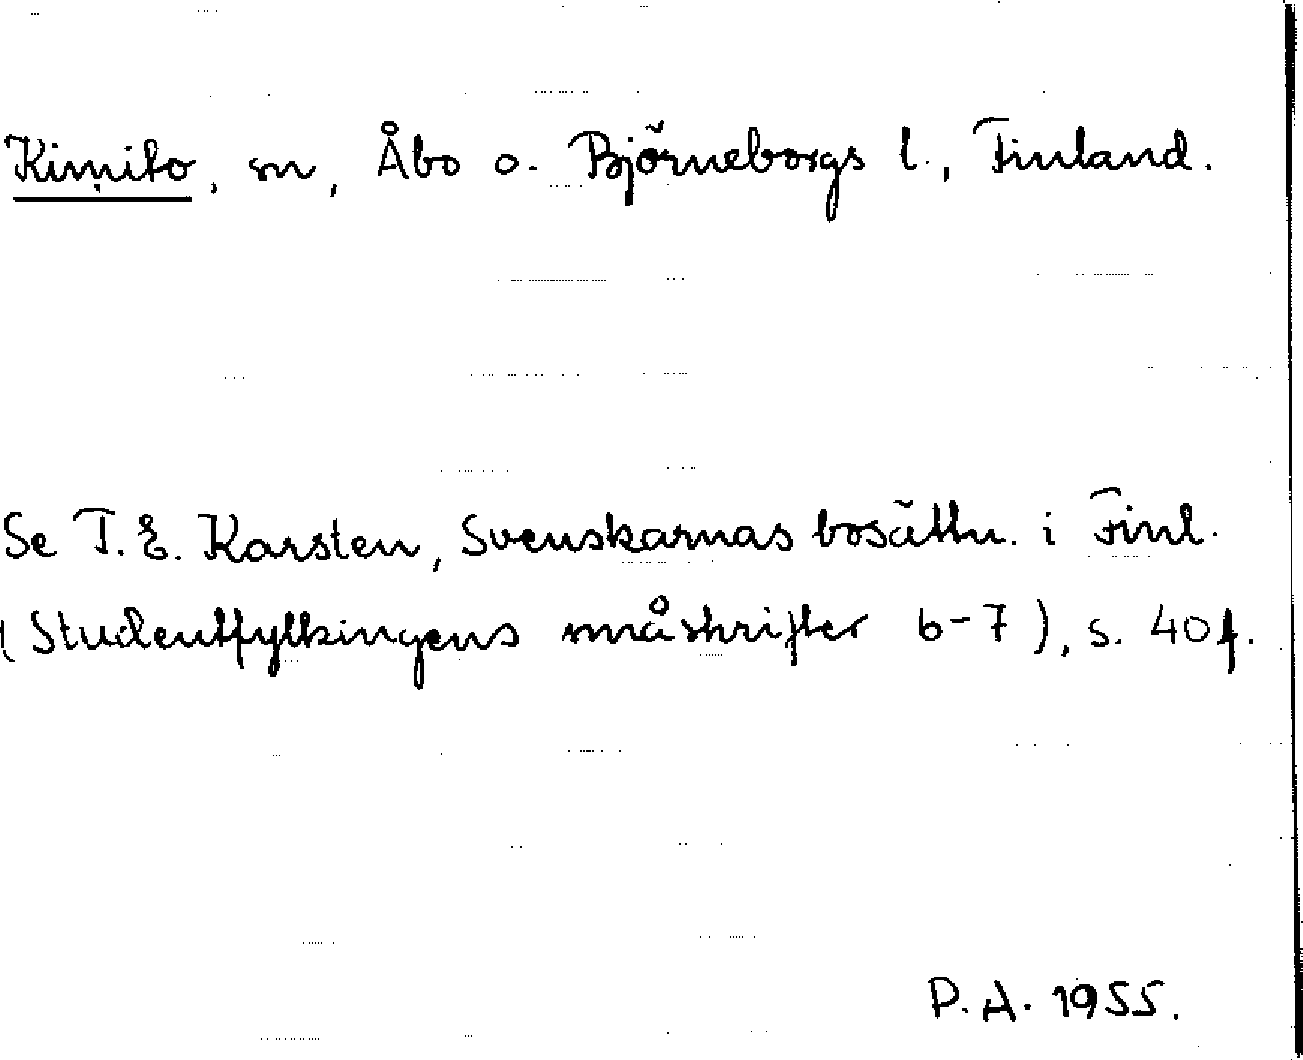 Kimito, sn, Åbo o. Björneborgs l., Finland.
Se T. E. Karsten, Svenskarnas bosättn. i Finl.
(Studentfylkingens småskrifter 6-7), s. 40 f.
P. A. 1955.